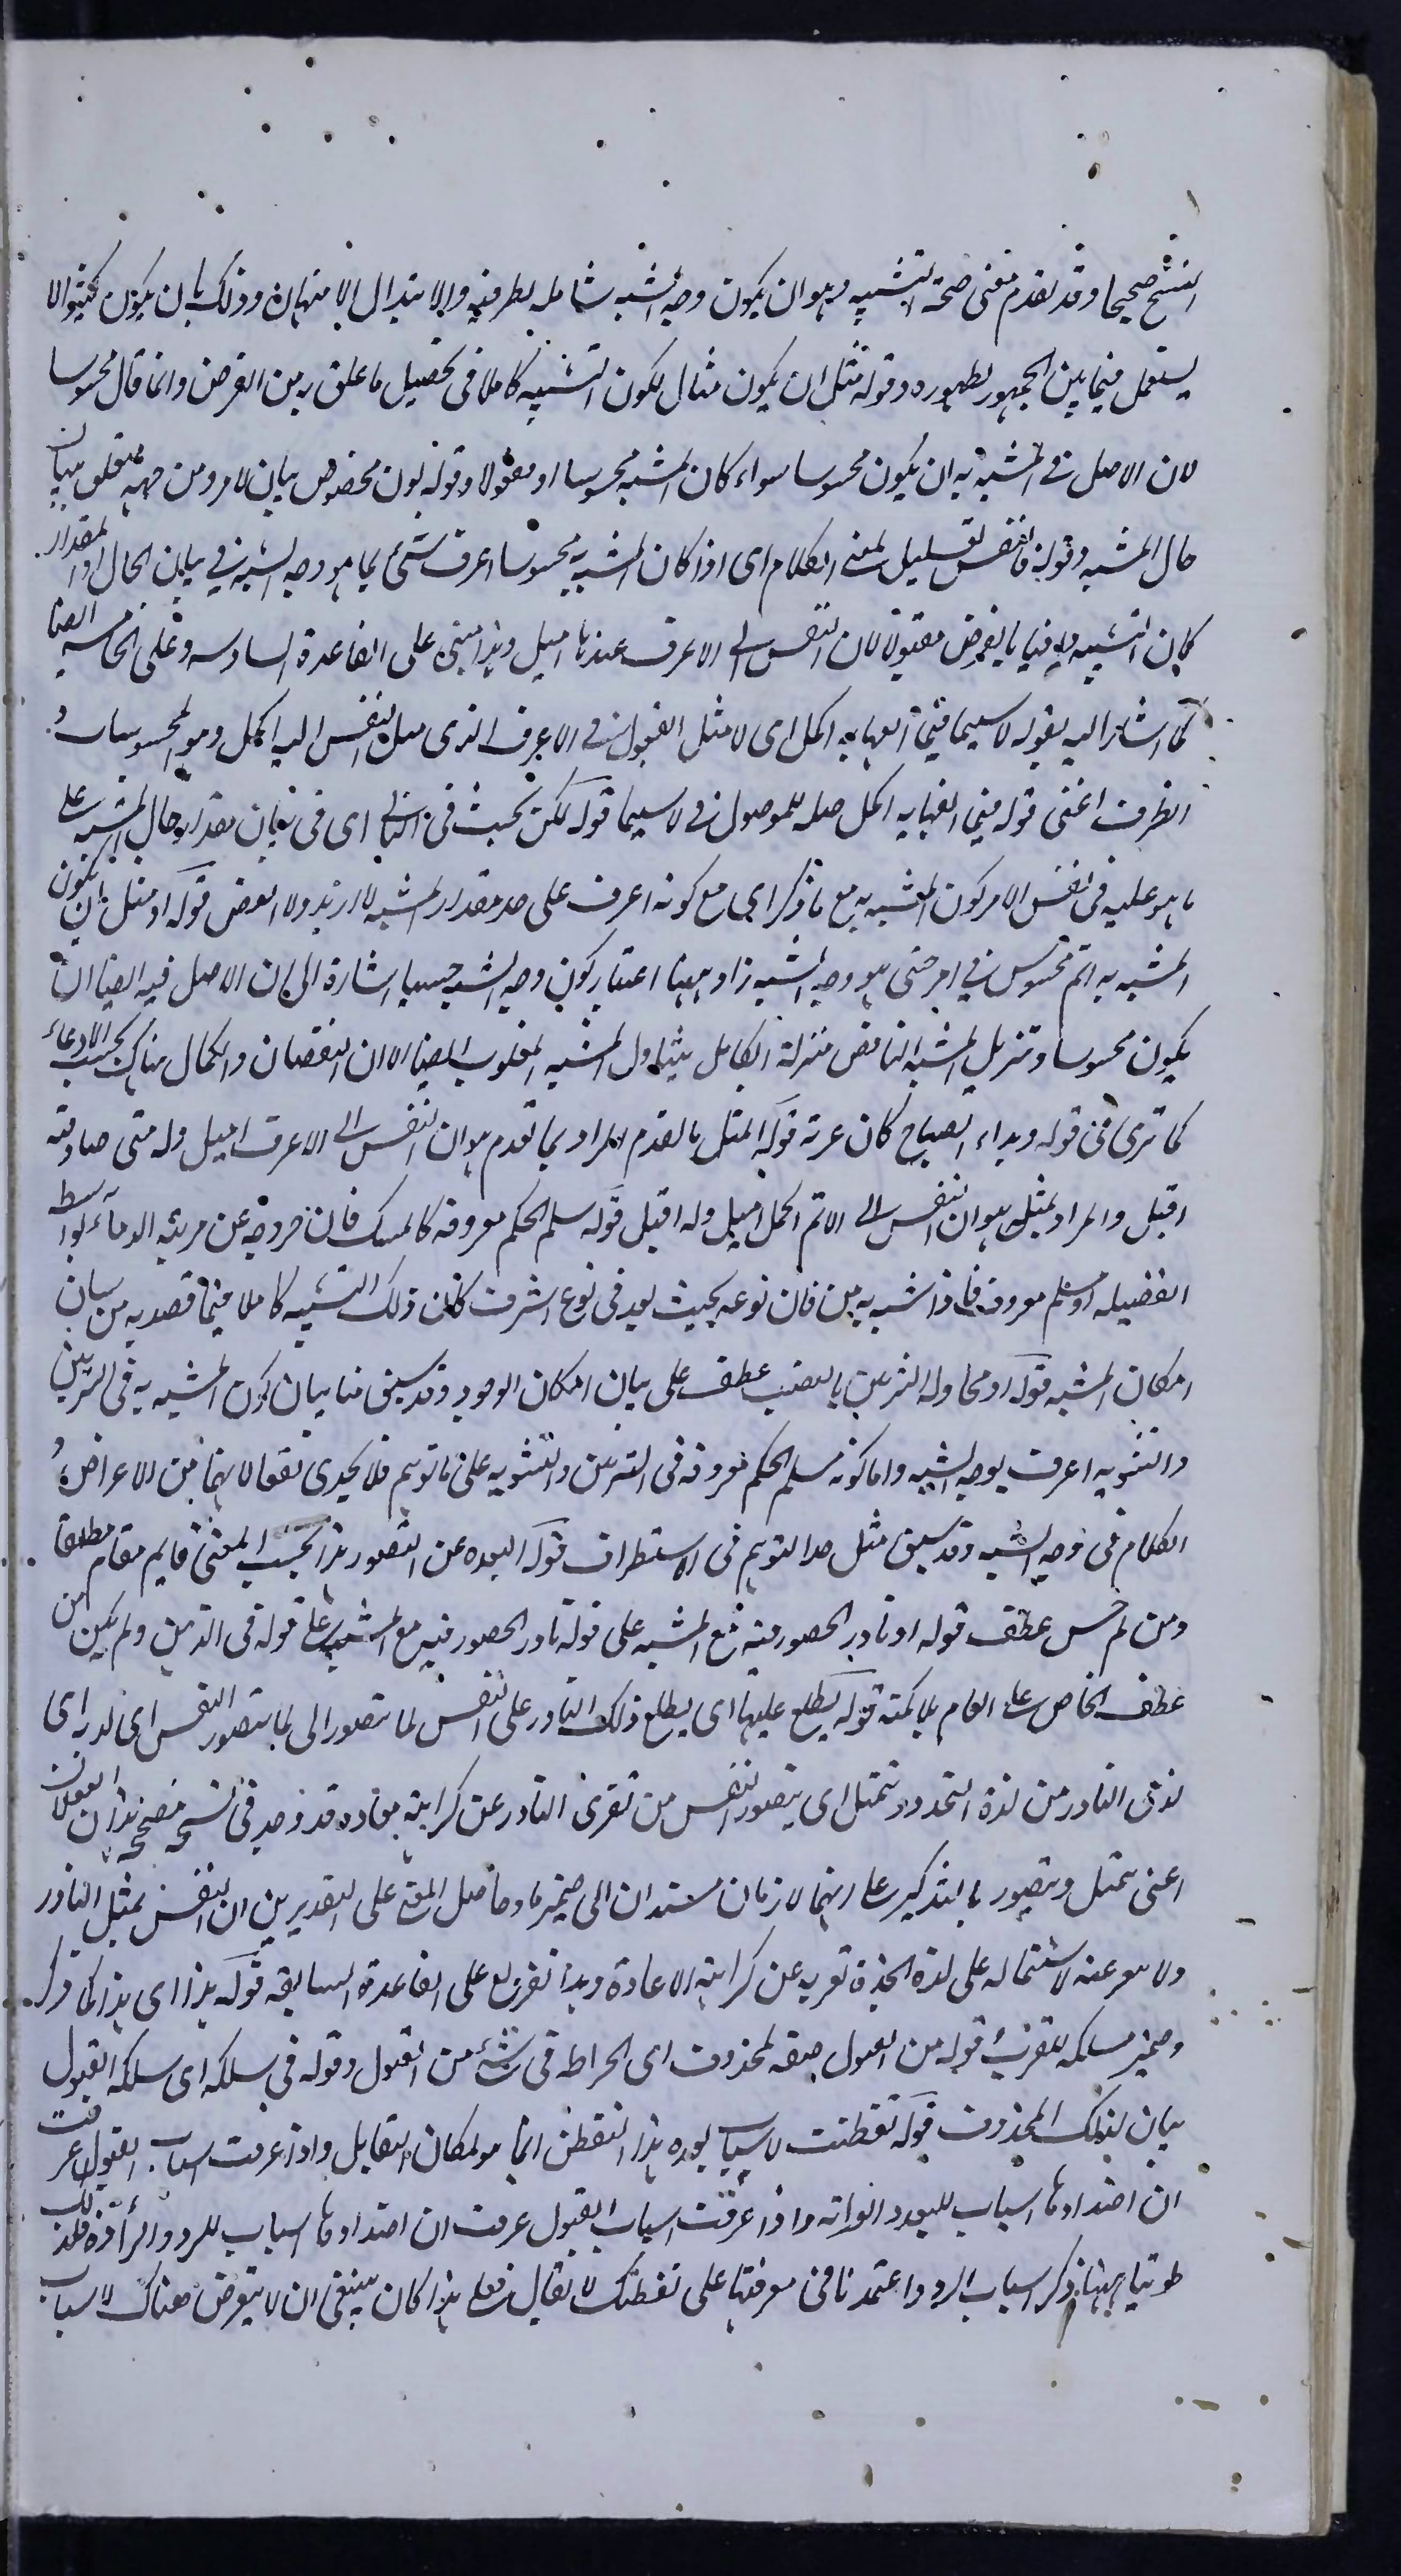 التشبيه صحيحا وقد تقدم معنى صحة التشبيه وهو ان يكون وجه الشبه شاملا لطرفيه والابتذال الامتهان وذلك بان يكون كثير الا
يستعمل فيما بين الجمهور لظهوره وقوله مثل ان يكون مثال لكون التشبيه كاملا في تحصيل ما علق به من الغرض وانما قال محسوسا
لان الاصل في المشبه به ان يكون محسوسا سواء كان المشبه محسوسا او معقولا وقوله لون مخصوص بيان لامر ومن جهة متعلق ببيان
حال المشبه وقوله فالنفس تعليل لمعنى الكلام اي اذا كان المشبه به محسوسا اعرف شئ بما هو وجه الشبه في بيان الحال او المقدار
كان التشبيه وافيا بالغرض مقبولا لان النفس الى الاعرف عندها اميل وهذا مبني على القاعدة السادسة وعلى الخامسة ايضا
كما اشار اليه بقوله لاسيما فيما الفها به اكمل اي لا مثل القبول في الاعرف الذي ميل النفس اليه اكمل وهو المحسوسات و
الظرف اعني قوله فيما الفها به اكمل صلة للموصول في لاسيما قوله لكن يجب في الثاني اي في بيان مقدار حال المشبه على
ما هو عليه في نفس الامر كون المشبه به مع ما ذكر اي مع كونه اعرف على حد مقدار المشبه لا ازيد ولا انقص قوله او مثل ان يكون
المشبه به اتم محسوس في امر حسي هو وجه الشبه زاد ههنا اعتبار كون وجه الشبه حسيا اشارة الى ان الاصل فيه ايضا ان
يكون محسوسا وتنزيل المشبه الناقص منزلة الكامل يتناول التشبيه المقلوب ايضا الا ان النقصان والكمال هناك بحسب الادعاء
كما ترى في قوله وبدا الصباح كان غرته قوله لمثل ما تقدم المراد بما تقدم هو ان النفس الى الاعرف اميل وله متى صادفته
اقبل والمراد بمثله هو ان النفس الى الاتم الاكمل اميل وله اقبل قوله مسلم الحكم معروفه كالمسك فان خروجه عن مرتبة الدماء بواسطة
الفضيلة امر مسلم معروف فاذا شبه به من فاق نوعه بحيث يعد في نوع اشرف كان ذلك التشبيه كاملا فيما قصد به من بيان
امكان المشبه قوله او محاولة التزيين بالنصب عطف على بيان امكان الوجود وقد سبق منا بيان كون المشبه به في التزيين
والتشويه اعرف بوجه الشبه واما كونه مسلم الحكم معروفه في التزيين والتشويه على ما توهم فلا يجدي نفعا لانهما من الاعراض و
الكلام في وجه الشبه وقد سبق مثل هذا التوهم في الاستطراف قوله لبعده عن التصور هذا بحسب المعنى قايم مقام مطلقا
ومن لم حس عطف قوله او نادر الحضور فيه مع المشبه على قوله نادر الحضور فيه مع المشبه على قوله في الذهن ولم يكن من
عطف الخاص على العام بلا نكتة قوله يطلع عليها اي يطلع ذلك النادر على النفس لما تتصور الى لما تتصور النفس اي لديه اي
لدى النادر من لذة التجدد وتتمثل اي يتصور النفس من تعري النادر عن كراهة معاده وقد وجد في نسخ مصححة هذان الفعلان
اعني يتمثل ويتصور بالتذكير على انهما لازمان مستندان الى ضمير ما وحاصل المعنى على التقديرين ان النفس يمثل النادر
ولا عنه لاشتماله على لذة الجدة تعريه عن كراهة الاعادة وهذا تفريع على القاعدة السابقة قوله هذا اي هذا كما ذكر
وضمير مسلكه للقرب قوله من القبول صفة لمحذوف اي انخراطه في شئ من القبول وقوله في سلكه اي سلك القبول
بيان لذلك المحذوف قوله تفطنت لاسباب بعده هذا التفطن انما هو لمكان التقابل واذا عرفت اسباب القبول عرفت
ان اضدادها اسباب للبعد والغرابة واذا عرفت اسباب القبول عرفت ان اضدادها اسباب للرد والرداءة فلذلك
طوينا ههنا ذكر اسباب الرد واعتمدنا في معرفتها على تفطنك لا يقال فعلى هذا كان ينبغي ان لا يتعرض هناك لاسباب